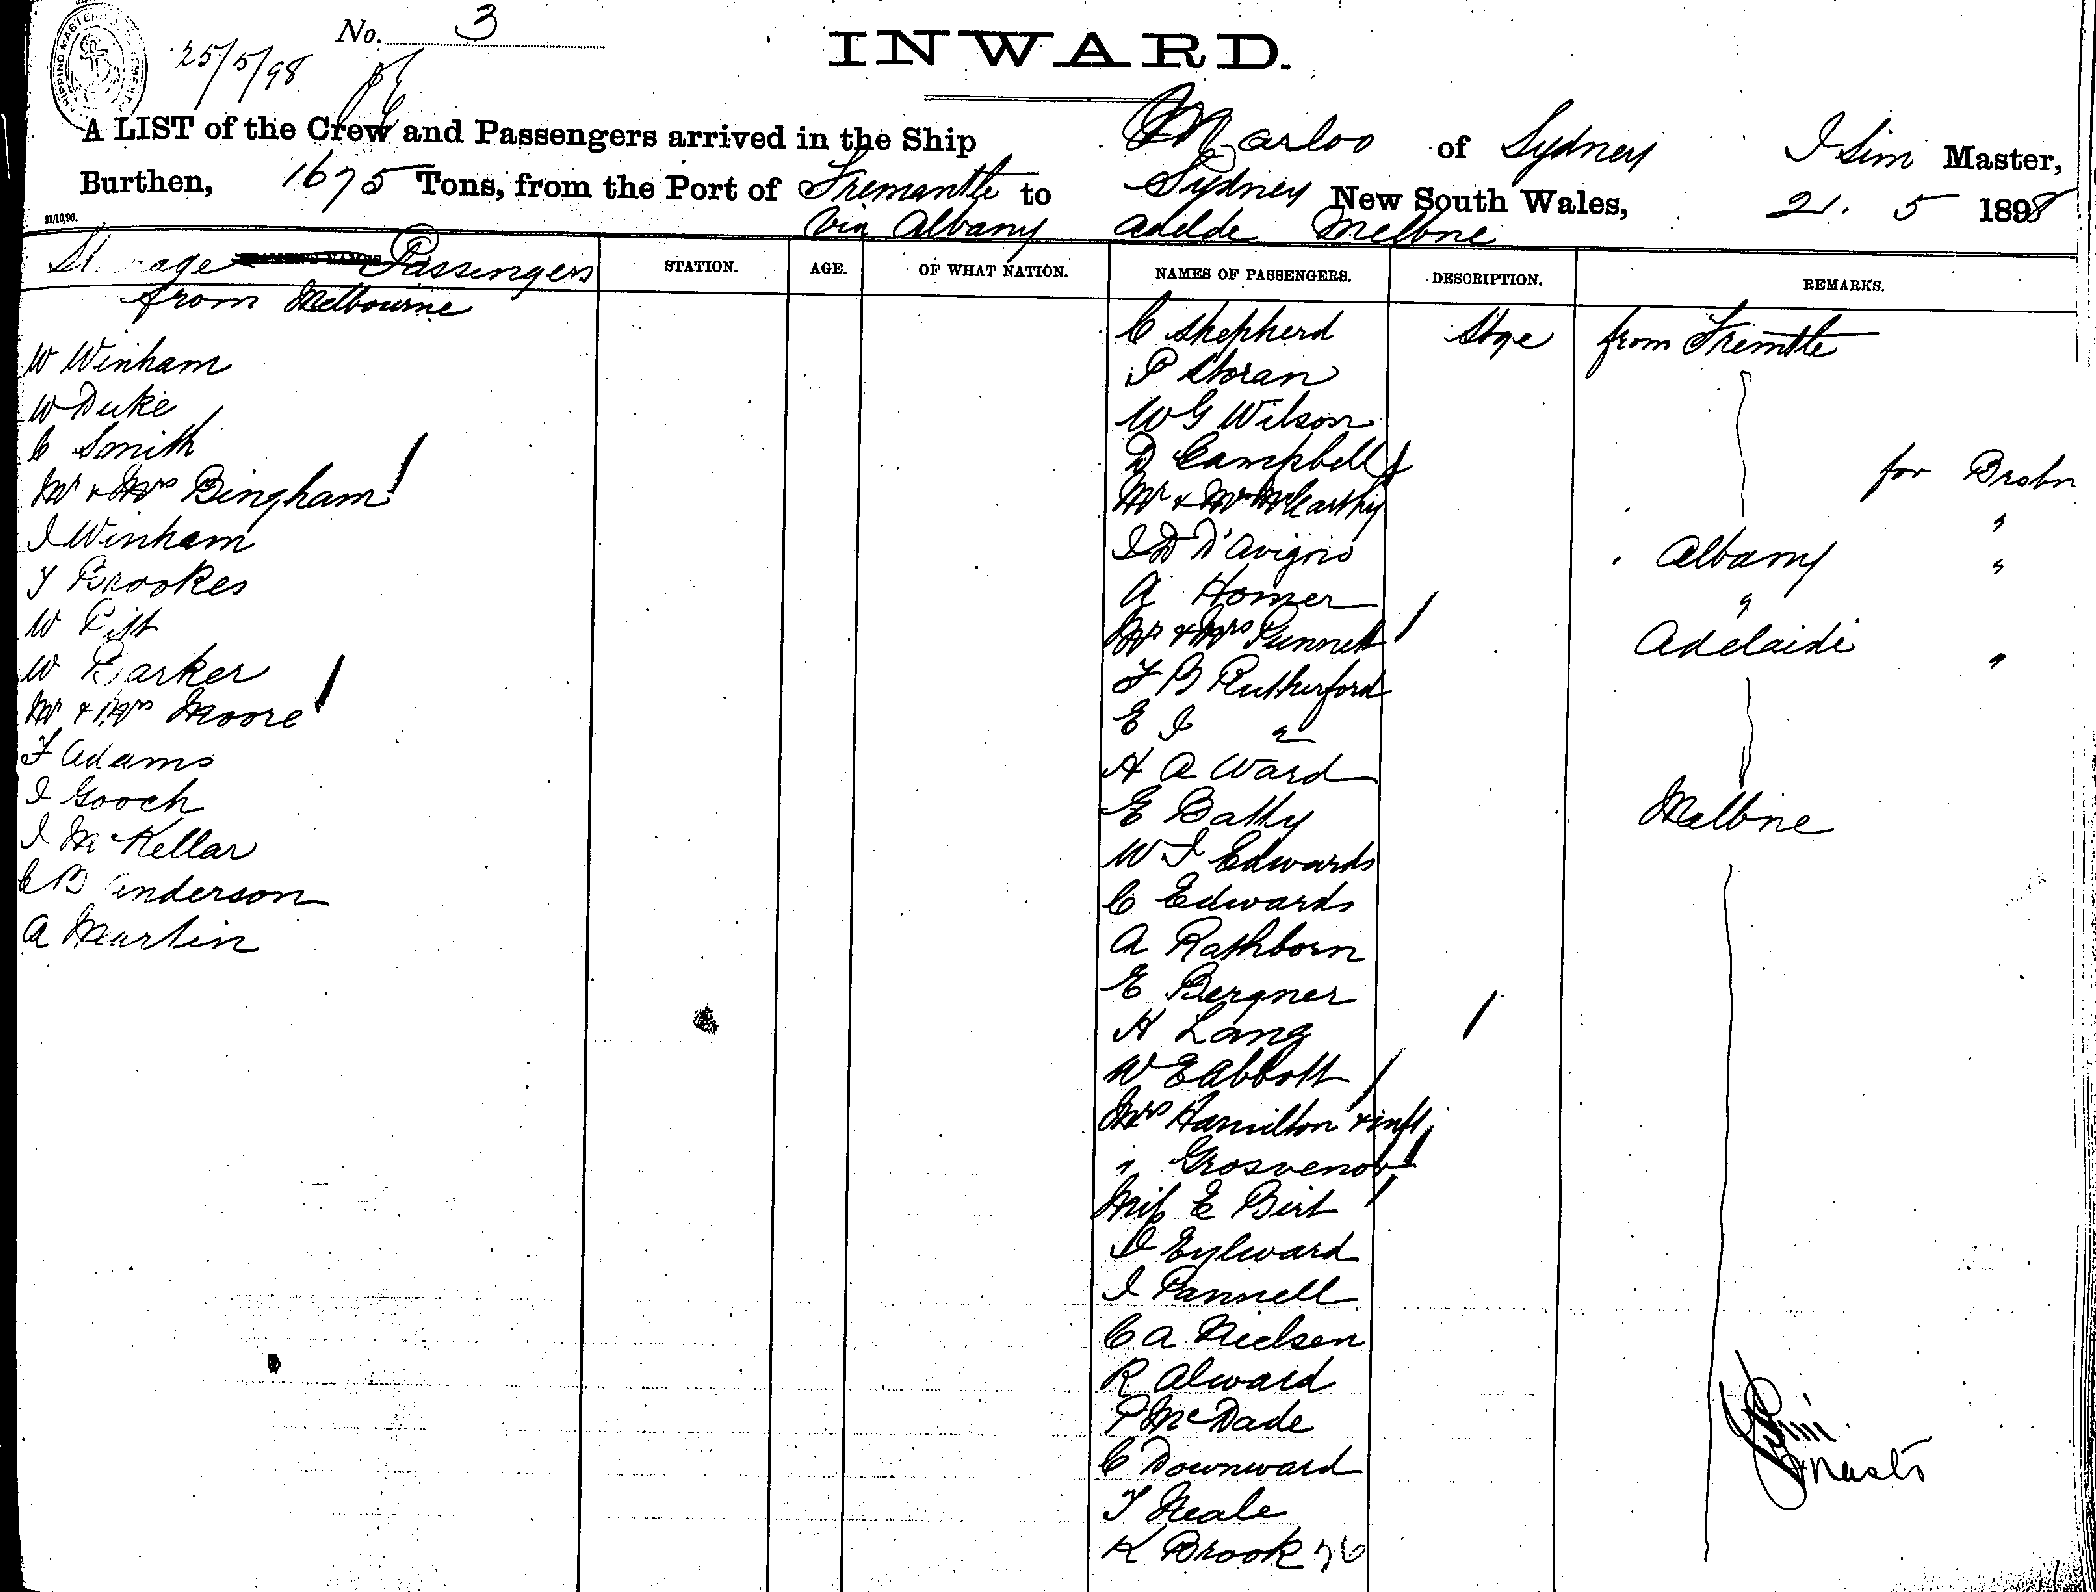 No. 3
25/5/98
INWARD.
A LIST of the Crew and Passengers arrived in the Ship Marloo of Sydney J Sim Master,
Burthen, 1675 Tons, from the Port of Fremantle to Sydney New South Wales, 21. 5 1898
via Albany Adelde Melbne
Passengers STATION. AGE. OF WHAT NATION. NAMES OF PASSENGERS. DESCRIPTION. REMARKS.
from Melbourne
W Winham
W Duke
C Smith
Mr & Mrs Bingham
J Winham
T Brookes
W Pitt
W Barker
Mr & Mrs Moore
F Adams
J Gooch
J McKellar
C B Anderson
A Martin
C Shepherd Stge from Fremtle
P Storan
W G Wilson
D Campbell for Brsbn
Mr & Mrs McCarthy "
J D D'Avigno Albany "
A Homer "
Mr & Mrs Gunnett Adelaide "
F B Rutherford
E J "
H A Ward
E Batty Melbne
W J Edwards
C Edwards
A Rathborn
E Bergner
H Lang
W E Abbott
Mrs Hamilton & inft
" Grosvenor
Miss E Birt
J Eylward
J Pannell
C A Nielsen
R Alward
P McDade
C Downward
T Neale
K Brook 76
J Sim
Master